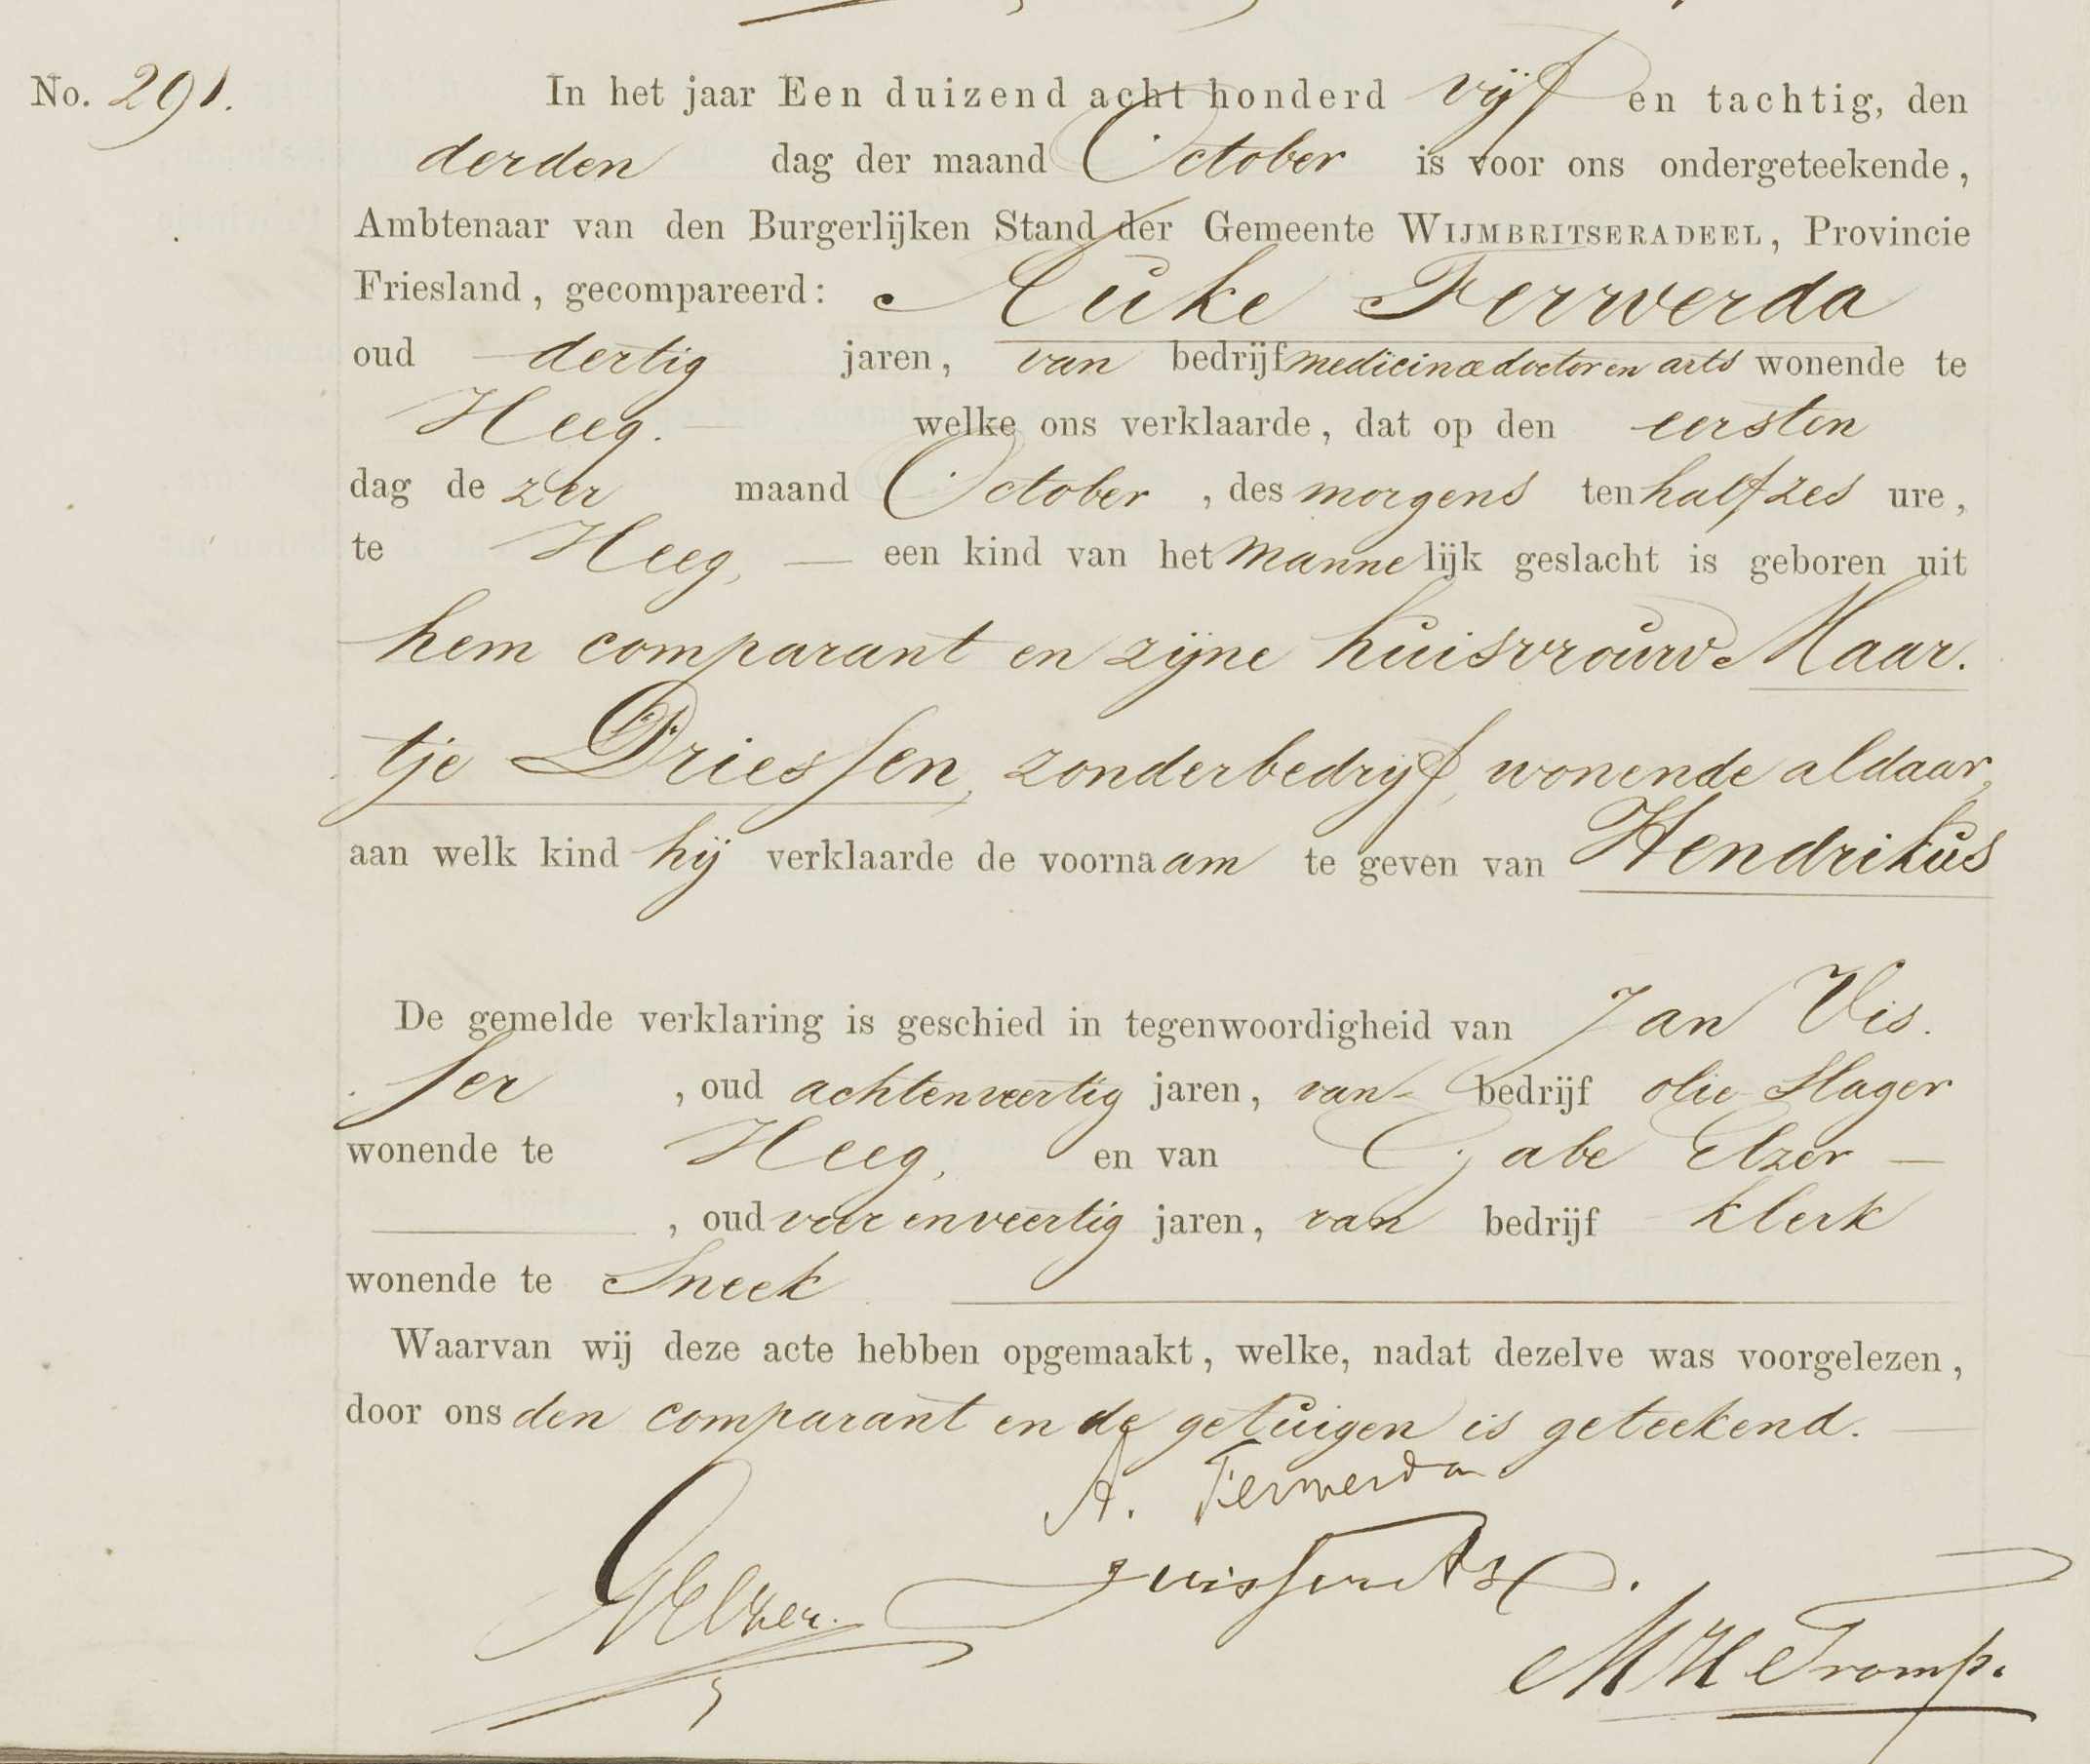 No. 291. In het jaar Een duizend acht honderd vijf en tachtig, den
derden dag der maand October is voor ons ondergeteekende,
Ambtenaar van den Burgerlijken Stand der Gemeente WIJMBRITSERADEEL, Provincie
Friesland, gecompareerd: Auke Ferwerda
oud dertig jaren, van bedrijf medicinæ doctor en arts wonende te
Heeg. welke ons verklaarde, dat op den eersten
dag dezer maand October, des morgens ten half zes ure,
te Heeg, — een kind van het mannelijk geslacht is geboren uit
hem comparant en zijne huisvrouw Maar.
tje Driessen, zonder bedrijf, wonende aldaar,
aan welk kind hij verklaarde de voornaam te geven van Hendrikus
De gemelde verklaring is geschied in tegenwoordigheid van Jan Vis.
ser, oud achtenveertig jaren, van bedrijf olie slager
wonende te Heeg, en van Gjabe Elzer —
, oud vier en veertig jaren, van bedrijf klerk
wonende te Sneek
Waarvan wij deze acte hebben opgemaakt, welke, nadat dezelve was voorgelezen,
door ons den comparant en de getuigen is geteekend.
A. Ferwerda
GElzer.
MHTromp.